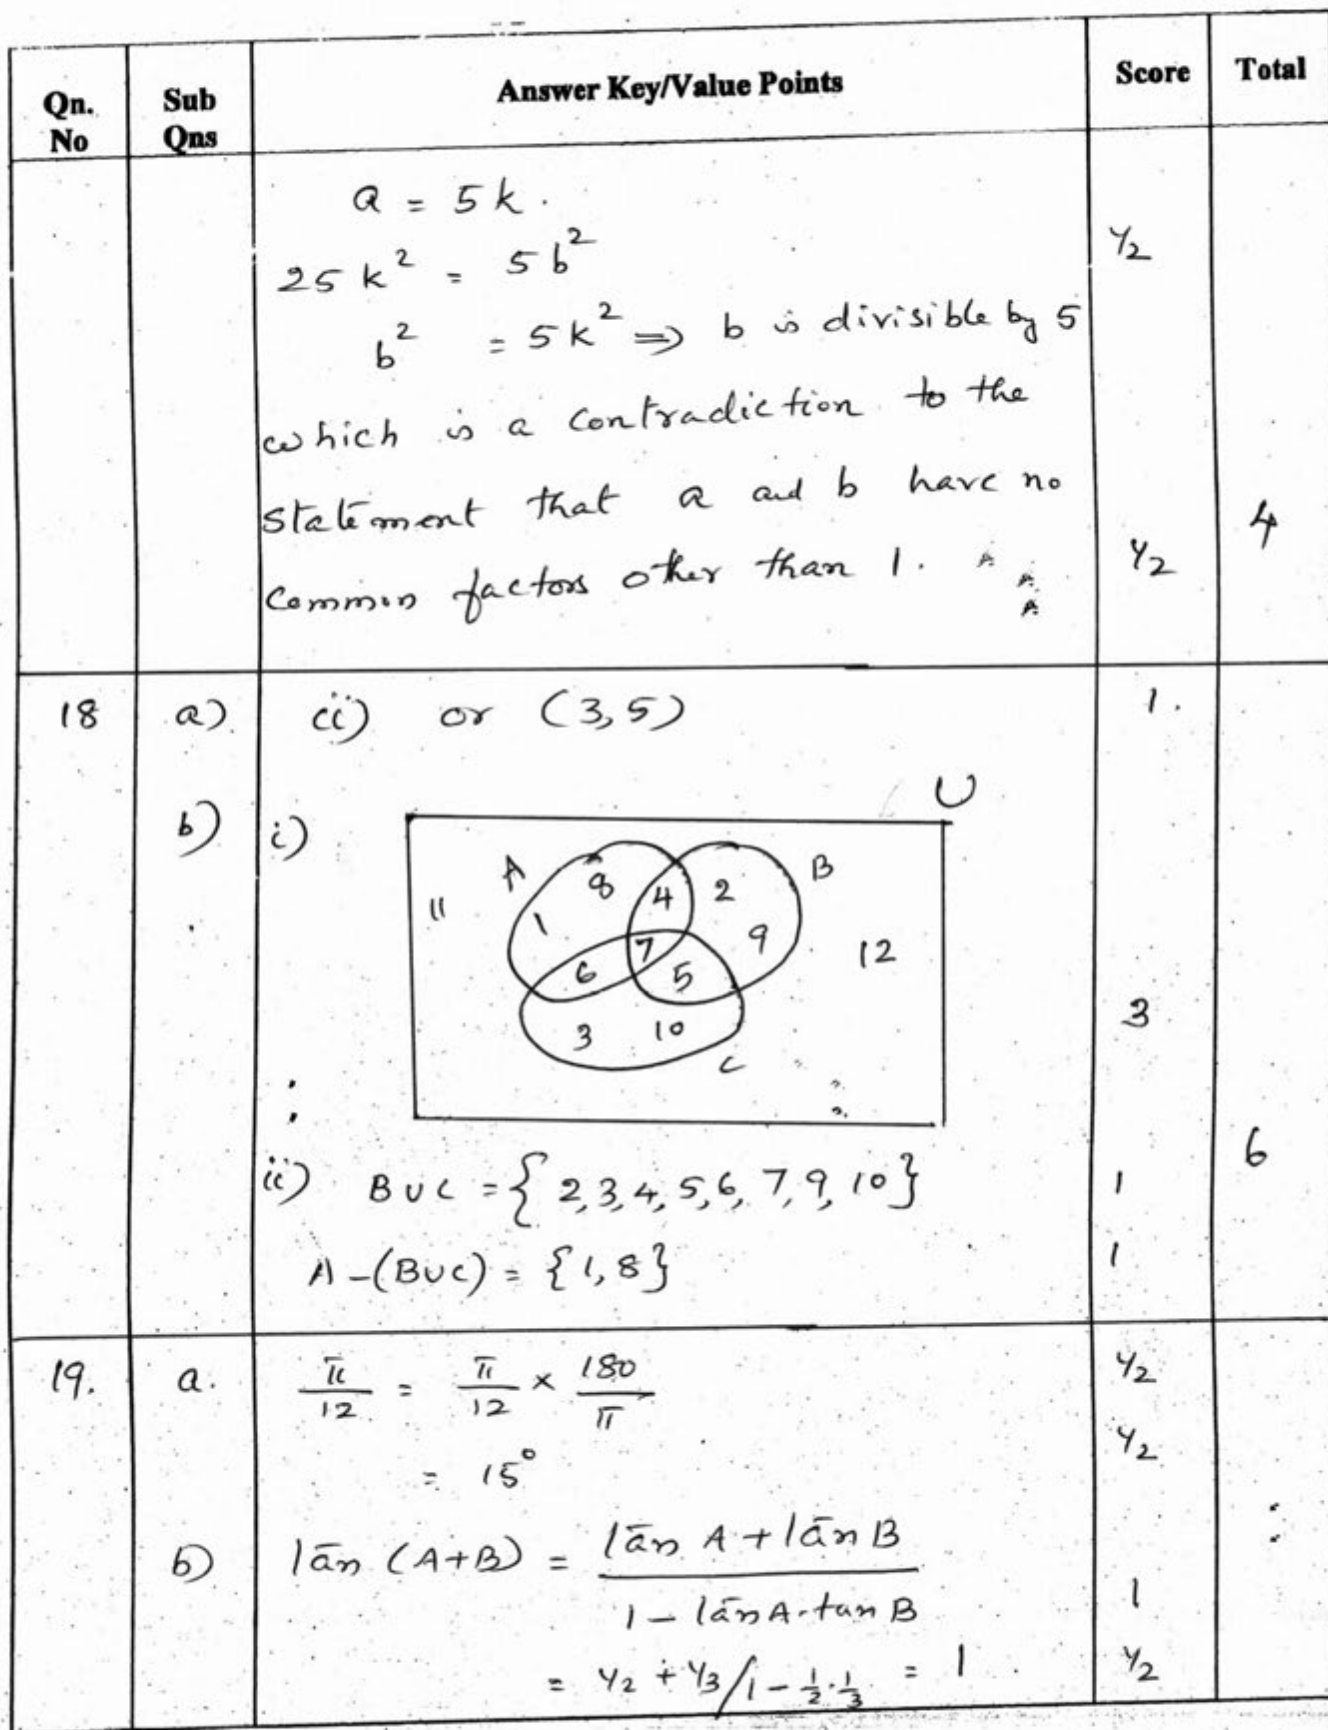 Qn. No Sub Qns Answer Key/Value Points Score Total
a = 5k.
25k² = 5b² 1/2
b² = 5k² ⇒ b is divisible by 5
which is a contradiction to the
statement that a and b have no 4
common factors other than 1. 1/2
18 a) (ii) or (3,5) 1.
U
b) i)
A 8 4 2 B
11 1 7 9 12
6 5
3 10 3
C
6
ii) B∪C = {2,3,4,5,6,7,9,10} 1
A-(B∪C) = {1,8} 1
19. a. π/12 = π/12 × 180/π 1/2
= 15° 1/2
b) tan (A+B) = tan A + tan B / 1 - tan A · tan B 1
= 1/2 + 1/3 / 1 - 1/2 · 1/3 = 1 1/2